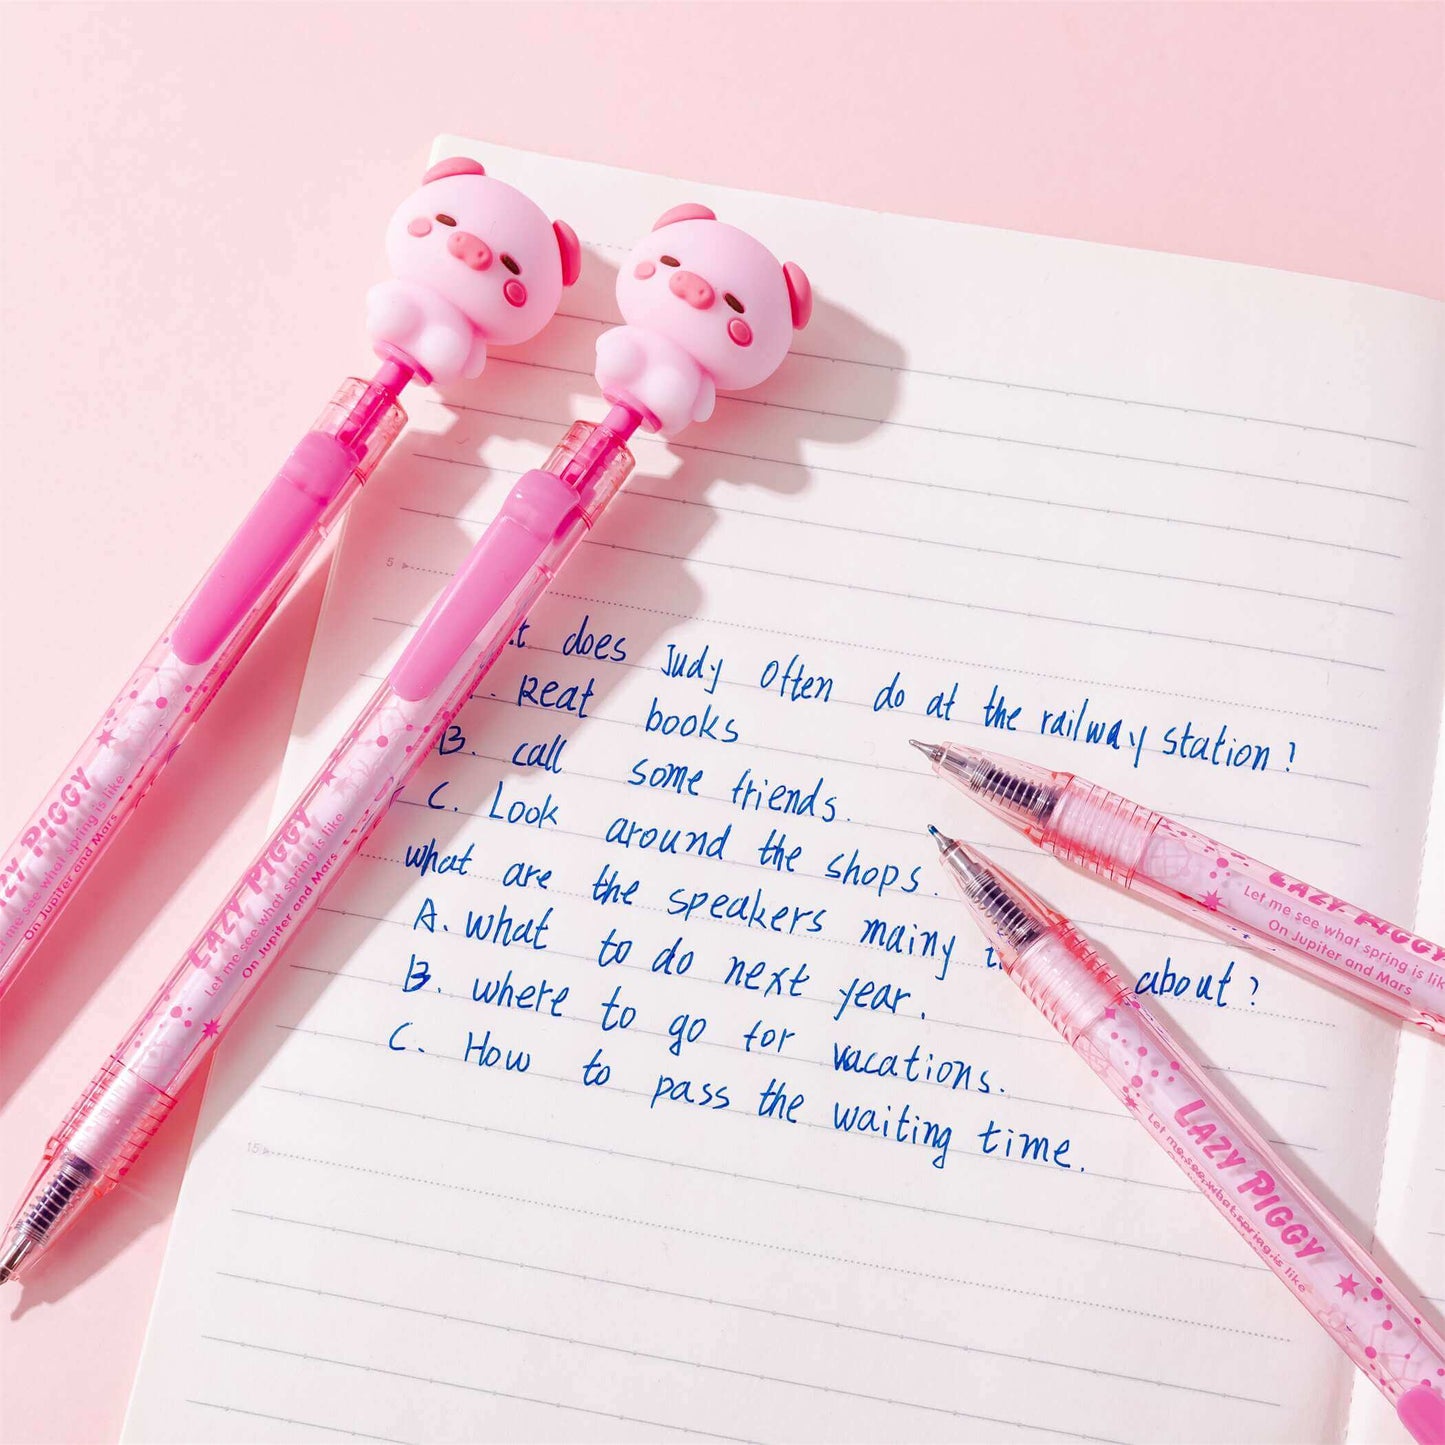 does Judy Often do at the railway station?
Reat books
B. call some friends.
C. Look around the shops.
what are the speakers mainy about?
A. what to do next year.
B. where to go for vacations.
C. How to pass the waiting time.
5
15
LAZY PIGGY
Let me see what spring is like
On Jupiter and Mars
PIGGY
me see what spring is like
On Jupiter and Mars
LAZY PIGGY
Let me see what spring is lik
On Jupiter and Mars
LAZY PIGGY
Let me see what spring is like